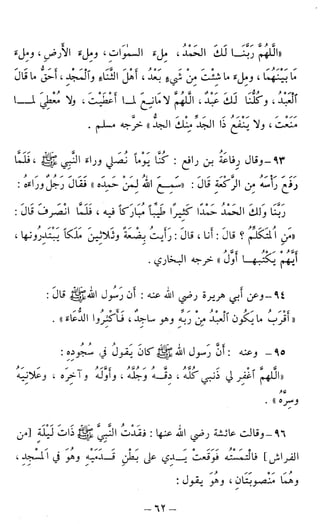 «اللهُمَّ رَبَّنَــا لَكَ الحَمْدُ، مِلءَ السمواتِ، ومِلءَ الأرضِ، ومِلءَ
مَا بَيْنَهُمَا، ومِلءَ ما شِئْتَ مِنْ شَيءٍ بَعْدُ، أَهْلَ الثَّنَاءِ وَالْمَجْدِ، أَحَقُّ ما قالَ
الْعَبْدُ، وكُلُّنَا لَكَ عَبْدٌ، اللهُمَّ لا مَانِعَ لمـا أَعْطَيتَ، ولا مُعْطِيَ لمـــا
مَنَعْتَ، ولا يَنْفَعُ ذا الجَدِّ مِنْكَ الجَدُّ» خرجه مسلم .
٩٣- وقال رفاعَةُ بن رافع : كُنَّا يَوْماً نُصَلِّي وراءَ النَّبِيِّ ﷺ، فَلَمَّا
رَفَعَ رَأْسَهُ مِنَ الرَّكْعَةِ قَالَ : «سَمِعَ اللهُ لِمَنْ حَمِدَه» فقَالَ رَجُلٌ وراءَهُ :
رَبَّنَا ولكَ الحَمْدُ حَمْدًا كَثيرًا طَيِّباً مُبَارَكاً فيه ، فَلَمَّا انْصَرفَ قالَ :
«مَنِ المُتَكَلِّمُ ؟ قالَ : أنا ، قالَ : رَأَيتُ بِضْعَةً وثَلاثِينَ مَلَكاً يَبْتَدِرُونَها ،
أَيُّهُمْ يَكْتُبُهـا أوَّلُ» خرجه البخاري .
٩٤- وعن أبي هريرة رضي الله عنه : أن رَسُول الله ﷺ قالَ :
«أقْرَبُ ما يكُون الْعَبْدُ مِنْ رَبِّهِ وهو ساجِدٌ، فَأَكْثِرُوا الدُّعَاءَ» .
٩٥- وعنه : أنَّ رَسول اللهِ ﷺ كانَ يَقُولُ في سُجُودِهِ :
«اللهُمَّ اغْفِر لي ذَنبي كلَّهُ ، دِقَّـــهُ وجُلَّهُ ، وأوَّلَهُ وآخِرَه ، وعَلانِيَتَهُ
وسِرَّهُ» .
٩٦- وقالت عائشة رضي الله عنها : فقَدْتُ النَّبيَّ ﷺ ذَاتَ لَيْلَةٍ [من
الفراش] فالْتَمَسْتُه فَوَقَعَتْ يَــدي على بَطْنِ قَــدَمَيْهِ وهُوَ في المَسْجِدِ ،
وهُمَا مَنْصوبَتَانِ ، وهُوَ يقول :
- ٦٢ -